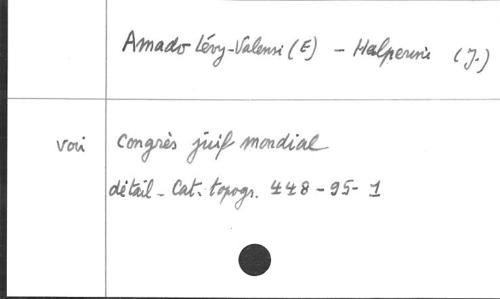 Amado Lévy-Valensi (E) - Halperini (J.)
voir Congrès juif mondial
détail - Cat. topogr. 448-95-1